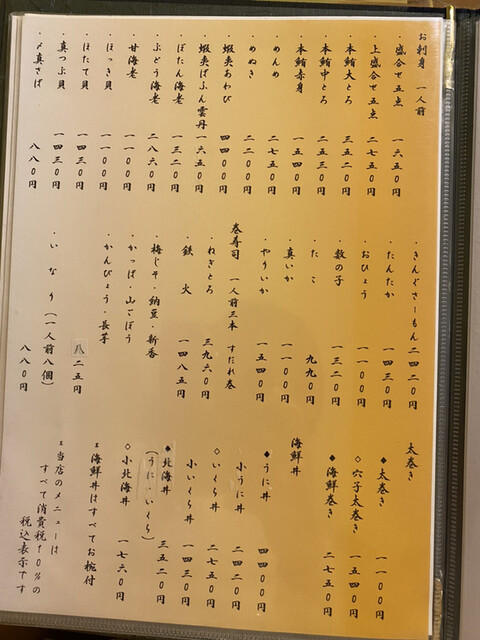 お刺身 一人前
・盛合せ五点 一六五〇円
・上盛合せ五点 二七五〇円
・本鮪大とろ 三五二〇円
・本鮪中とろ 二五三〇円
・本鮪赤身 一五四〇円
・めんめ 二七五〇円
・めぬき 二二〇〇円
・蝦夷あわび 四四〇〇円
・蝦夷ばふん雲丹 一六五〇円
・ぼたん海老 一三二〇円
・ぶどう海老 二八六〇円
・甘海老 一一〇〇円
・ほっき貝 一一〇〇円
・ほたて貝 一四三〇円
・真つぶ貝 一四三〇円
・〆真さば 八八〇円
・きんぐさーもん 二四二〇円
・たんたか 一四三〇円
・おひょう 一一〇〇円
・数の子 一三二〇円
・たこ 九九〇円
・真いか 一一〇〇円
・やりいか 一五四〇円
巻寿司 一人前三本 すだれ巻
・ねぎとろ 三九六〇円
・鉄火 一四八五円
・梅じそ・納豆・新香
・かっぱ・山ごぼう
・かんぴょう・長芋
八二五円
・いなり(一人前八個) 八八〇円
太巻き
◆太巻き 一一〇〇円
◇穴子太巻き 一五四〇円
◆海鮮巻き 二七五〇円
海鮮丼
◆うに丼 四四〇〇円
小うに丼 二四二〇円
◇いくら丼 二七五〇円
小いくら丼 一四三〇円
◆北海丼 三五二〇円
(うに・いくら)
◇小北海丼 一七六〇円
※海鮮丼はすべてお椀付
※当店のメニューは
すべて消費税10%の
税込表示です